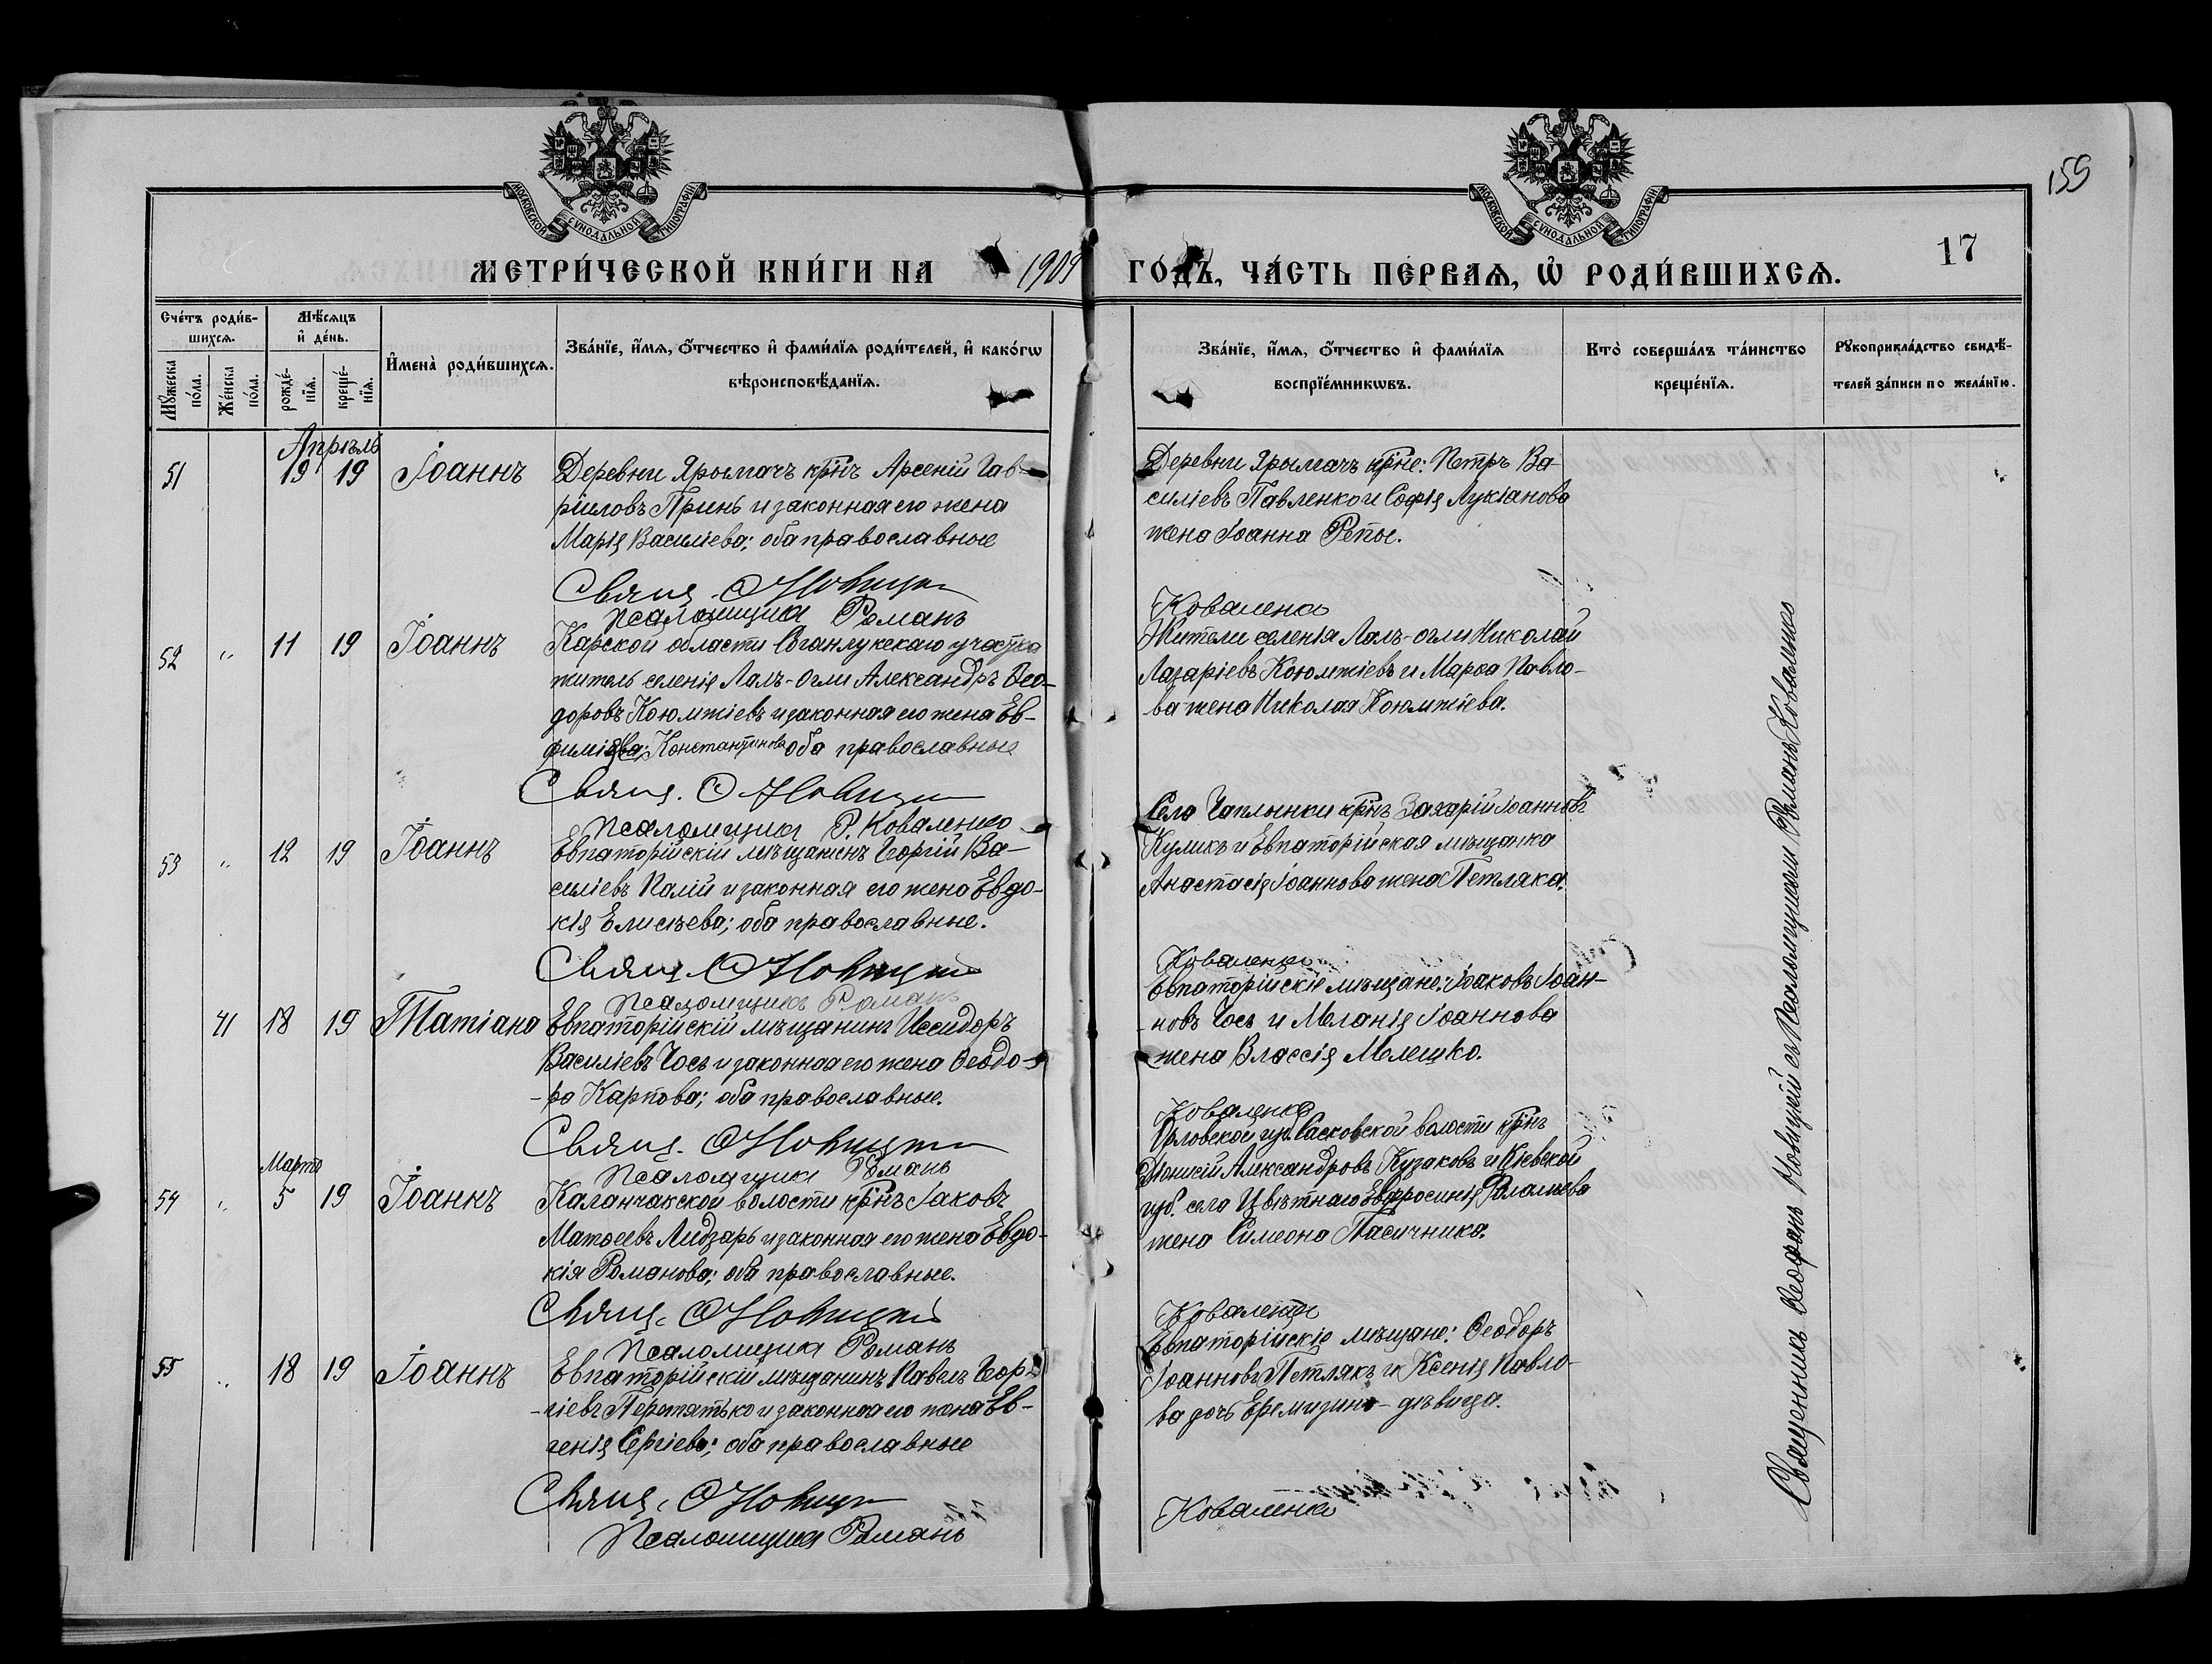 159
МОСКОВСКОЙ СУНОДАЛЬНОЙ ТИПОГРАФІИ
МОСКОВСКОЙ СУНОДАЛЬНОЙ ТИПОГРАФІИ
17
МЕТРИ́ЧЕСКОЙ КНИ́ГИ НА 1909 ГО́ДЪ, ЧА́СТЬ ПЕ́РВАѦ, Ѡ҆ РОДИ́ВШИХСѦ.
Сче́тъ роди́в-
шихсѧ.
Мѣ́сѧцъ
и҆ де́нь.
Мꙋ́жеска
по́ла.
Же́нска
по́ла.
рожде́-
нїѧ.
креще́-
нїѧ.
И҆мена̀ роди́вшихсѧ.
Зва́нїе, и҆́мѧ, ѻ҆́тчество и҆ фами́лїѧ роди́телей, и҆ како́гѡ
вѣроисповѣ́данїѧ.
Зва́нїе, и҆́мѧ, ѻ҆́тчество и҆ фами́лїѧ
воспрїе́мникѡвъ.
Кто̀ соверша́лъ та́инство
креще́нїѧ.
Рꙋкоприкла́дство свидѣ́-
телей за́писи по жела́нїю.
Апрѣль
51 19 19 Іоаннъ
Деревни Ярымачъ кр҃нъ Арсеній Гав-
ріиловъ Принь и законная его жена
Марія Василіева; оба православные
Свящ. Ѳ Новицкі
Псаломщикъ Романъ
Деревни Ярымачъ кр҃не: Петръ Ва-
силіевъ Павленко и Софія Лукіанова
жена Іоанна Репы.
Коваленко
52 " 11 19 Іоаннъ
Карской области Соганлукскаго участка
житель селенія Лалъ-Огли Александръ Ѳео-
доровъ Коюмжіевъ и законная его жена Ев-
фимія Константинова оба православные
Свящ. Ѳ Новицкі
Псаломщикъ Р. Коваленко
Жители селенія Лалъ-огли Николай
Лазаріевъ Коюмжіевъ и Марѳа Павло-
ва жена Николая Коюмжіева.
53 " 12 19 Іоаннъ
Евпаторійскій мѣщанинъ Георгій Ва-
силіевъ Палій и законная его жена Евдо-
кія Елисѣева; оба православные.
Свящ. Ѳ Новицкі
Псаломщикъ Романъ
Село Чаплынки кр҃нъ Захарій Іоанновъ
Куликъ и Евпаторійская мѣщанка
Анастасія Іоаннова жена Петляка.
Коваленко
41 18 19 Татіана
Евпаторійскій мѣщанинъ Исидоръ
Василіевъ Чосъ и законная его жена Ѳеодо-
ра Карпова; оба православные.
Свящ. Ѳ Новицкі
Псаломщикъ Романъ
Евпаторійскіе мѣщане: Іаковъ Іоан-
новъ Чосъ и Меланія Іоаннова
жена Влассія Мелешко.
Коваленко
Мартъ
54 " 5 19 Іоаннъ
Каланчакской волости кр҃нъ Іаковъ
Матѳеевъ Лидзарь и законная его жена Евдо-
кія Романова; оба православные.
Свящ. Ѳ Новицкі
Псаломщикъ Романъ
Орловской губ. Сасковской волости кр҃нъ
Александровъ Кузаковъ и Кіевской
губ. села Цвѣтнаго Евфросинія
жена Симеона Пасичника.
Коваленко
55 " 18 19 Іоаннъ
Евпаторійскій мѣщанинъ Павелъ Геор-
гіевъ Перетятько и законная его жена Ев-
генія Сергіева; оба православные
Свящ. Ѳ Новицкі
Псаломщикъ Романъ
Евпаторійскіе мѣщане: Ѳеодоръ
Іоанновъ Петлякъ и Ксенія Павло-
ва дочь Еремизина-дѣвица.
Коваленко
Священникъ Ѳеофанъ Новицкій съ Псаломщикомъ Романъ Коваленко